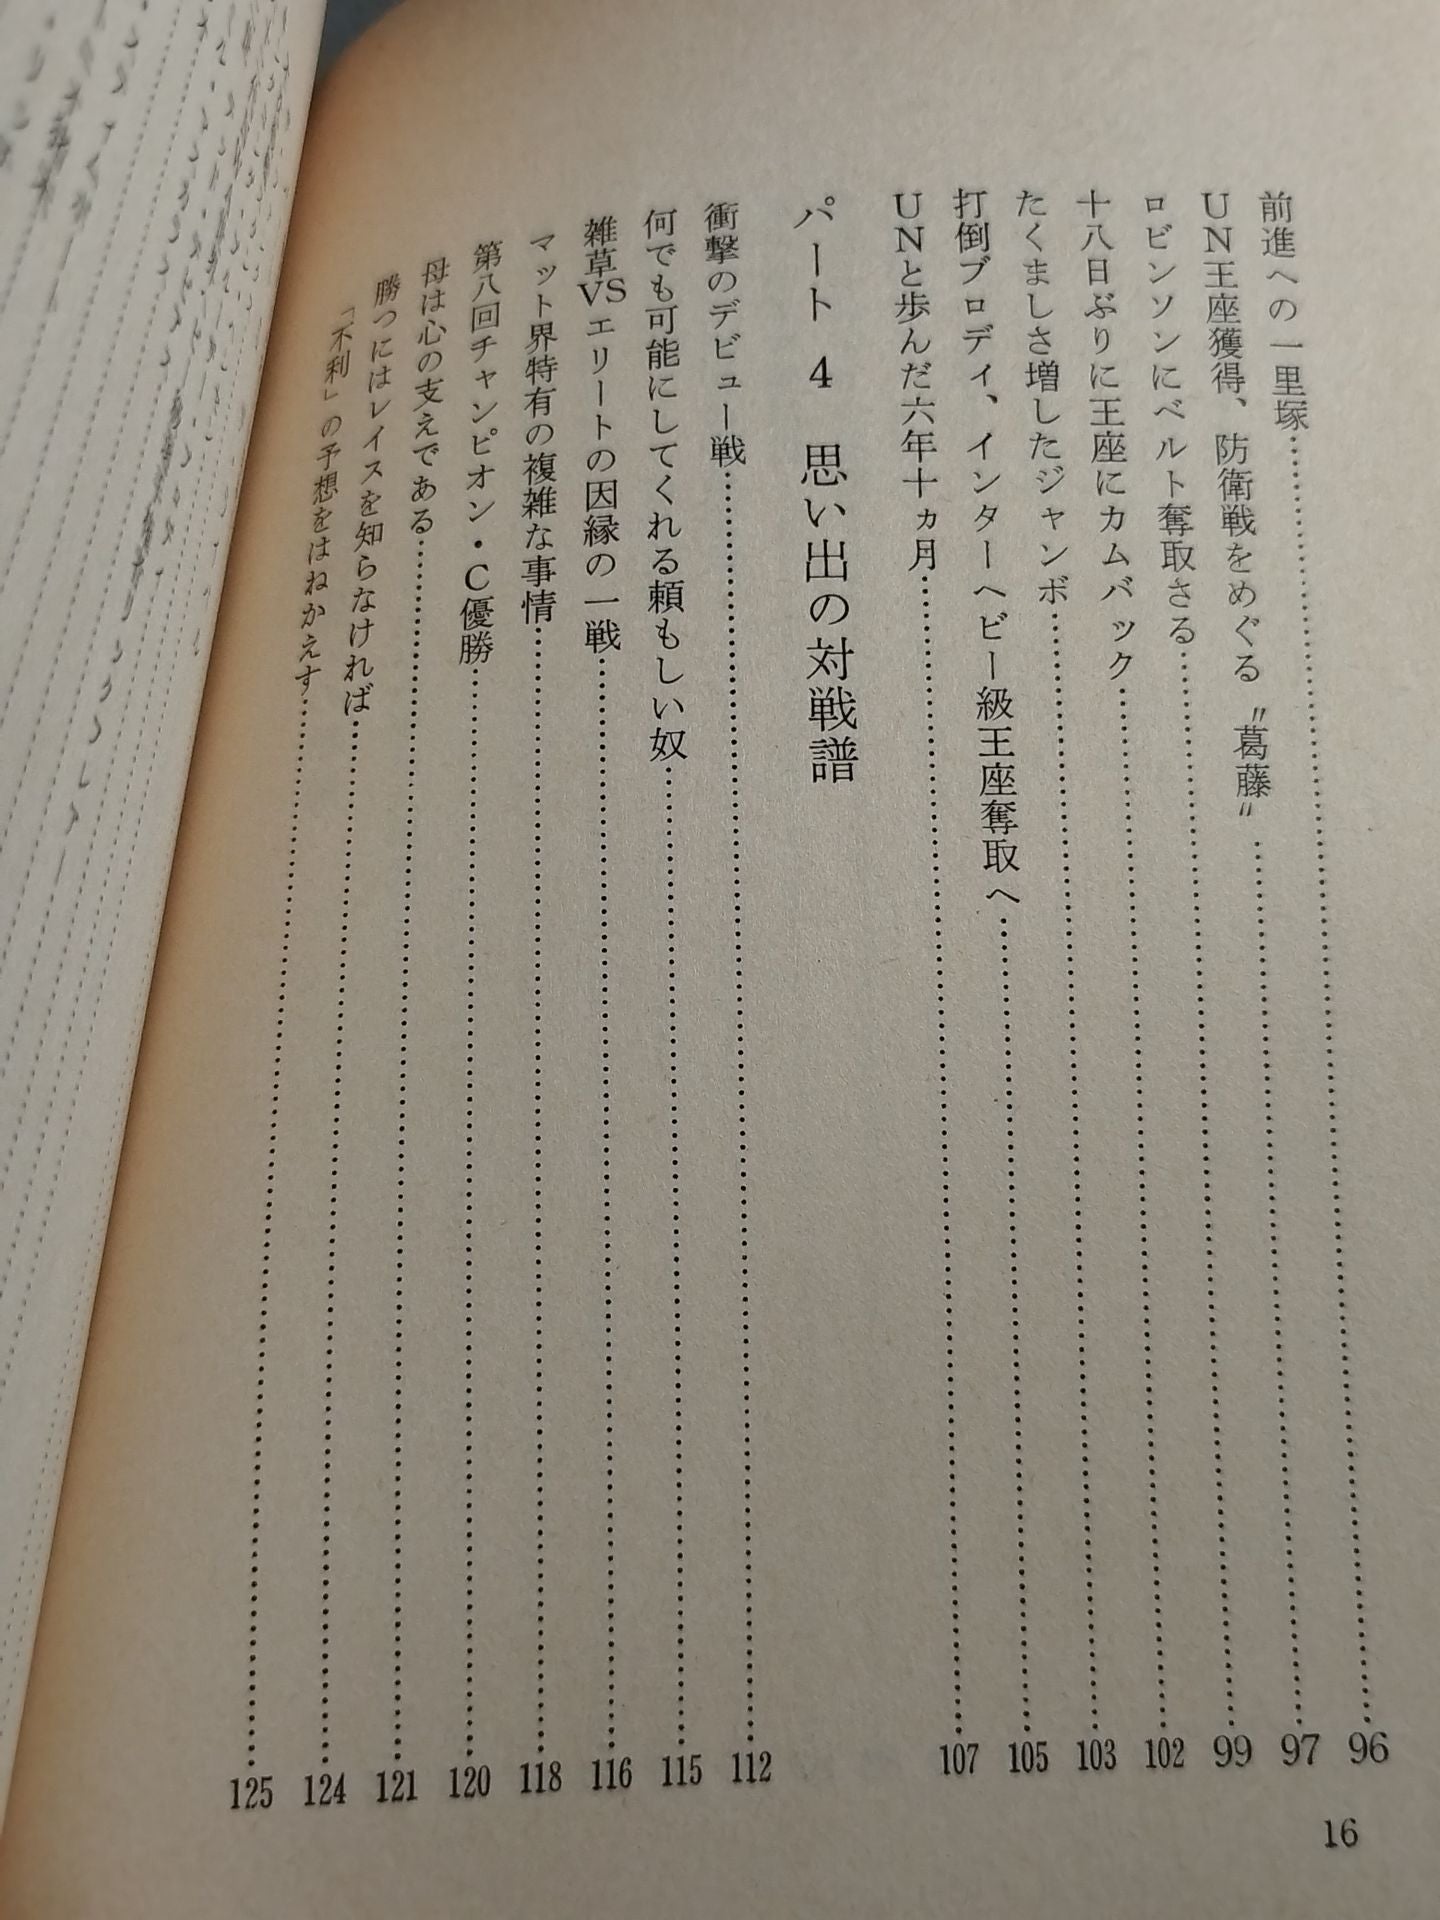 前進への一里塚……96
UN王座獲得、防衛戦をめぐる〝葛藤〟……97
ロビンソンにベルト奪取さる……99
十八日ぶりに王座にカムバック……102
たくましさ増したジャンボ……103
打倒ブロディ、インターヘビー級王座奪取へ……105
UNと歩んだ六年十ヵ月……107
パート 4 思い出の対戦譜
衝撃のデビュー戦……112
何でも可能にしてくれる頼もしい奴……115
雑草VSエリートの因縁の一戦……116
マット界特有の複雑な事情……118
第八回チャンピオン・C優勝……120
母は心の支えである……121
勝つにはレイスを知らなければ……124
「不利」の予想をはねかえす……125
16